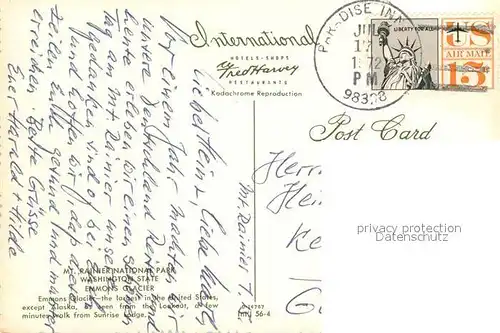 International
HOTELS · SHOPS
Fred Harvey
RESTAURANTS
Kodachrome Reproduction
PARADISE INN
JUL
17
1972
PM
98398
LIBERTY FOR ALL
US
AIR MAIL
15
Post Card
Mt. Rainier
Lieber Heinz, liebe
vor einem Jahr machten wir
unsere Deutschland Reise
heute erleben wir einen schönen
Tag am Mt Rainier unsere
Gedanken sind bei
und hoffe wir, dass diese
Zeilen Euch gesund und munter
erreichen. Beste Grüsse
Euer Harald + Hilde
Herr
Hei
Ke
privacy protection
Datenschutz
MT. RAINIER NATIONAL PARK
WASHINGTON STATE
EMMONS GLACIER
Emmons Glacier—the largest in the United States,
except Alaska, as seen from the Lookout, a few
minutes walk from Sunrise Lodge.
56-4